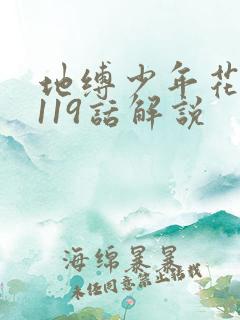 地缚少年花
119話解説
海绵暴暴
未经同意禁止转载